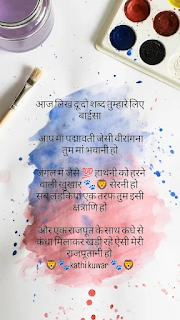 आज लिख दू दो शब्द तुम्हारे लिए
बाईसा
आप मां पद्मावती जेसी वीरांगना
तुम मां भवानी हो
जंगल में जेसे 💯 हाथनी को हराने
वाली खुंखार 🐾🦁 सेरनी हो
सब लड़किया एक तरफ तुम इसी
क्षत्राणि हो
और एक राजपूत के साथ कंधे से
कंधा मिलाकर खड़ी रहे ऐसी मेरी
राजपूतानी हो
🦁🐾kathi kuwar 🐾🦁